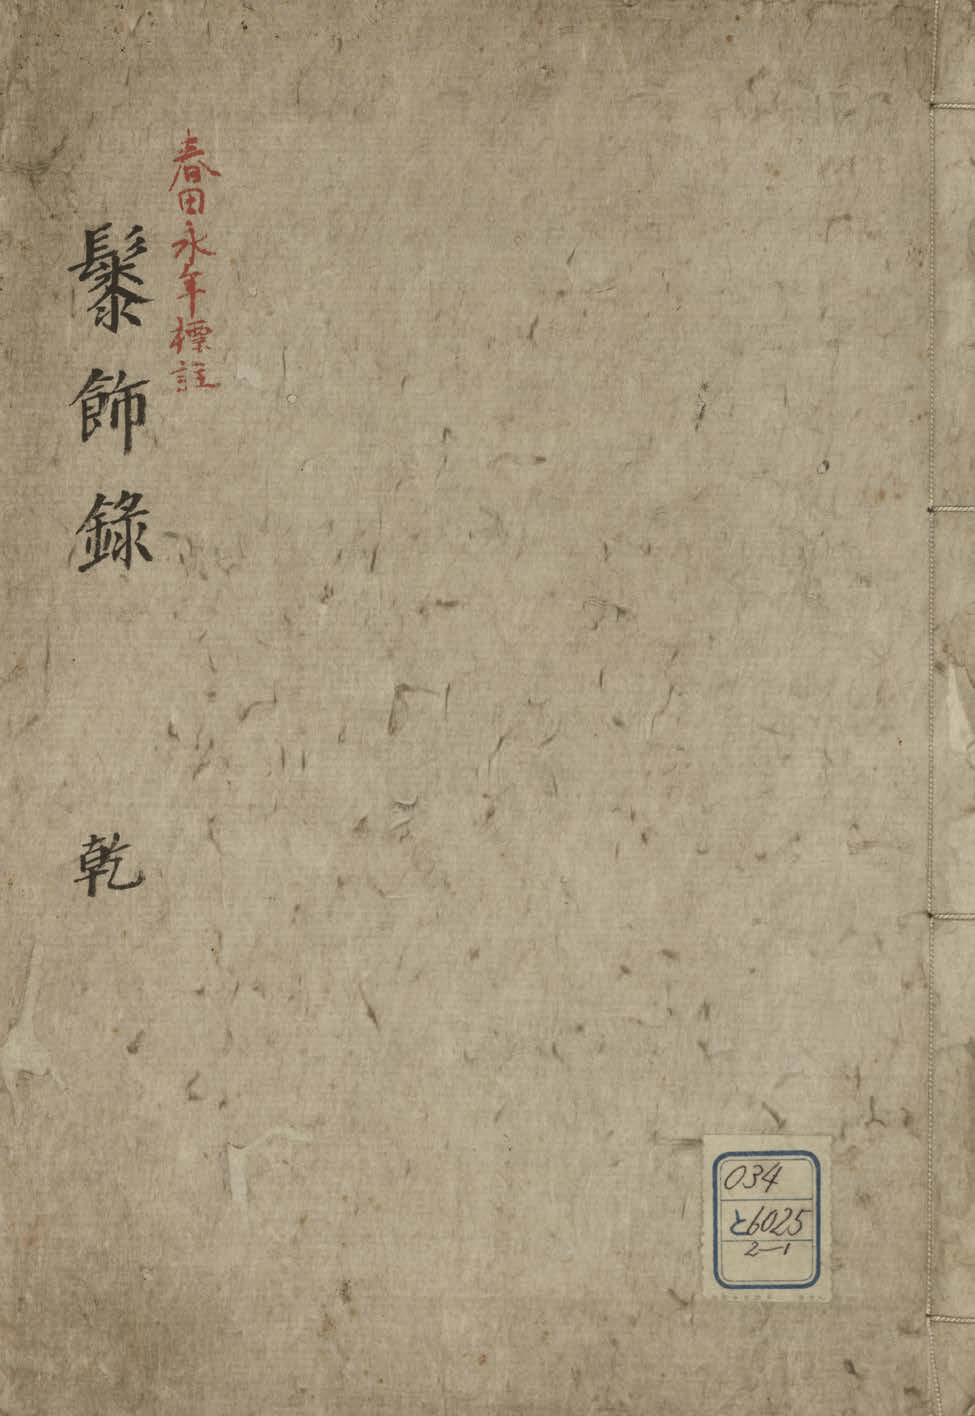 春田永年標註
髹飾錄
乾
034
と6025
2-1